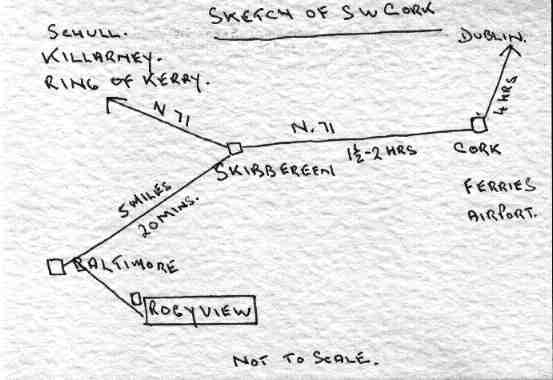 SKETCH OF SW CORK
SCHULL.
KILLARNEY.
RING OF KERRY.
DUBLIN.
N 71
N.71
4 HRS
1½-2 HRS
CORK
SKIBBEREEN
FERRIES
AIRPORT.
5 MILES
20 MINS.
BALTIMORE
ROGYVIEW
NOT TO SCALE.